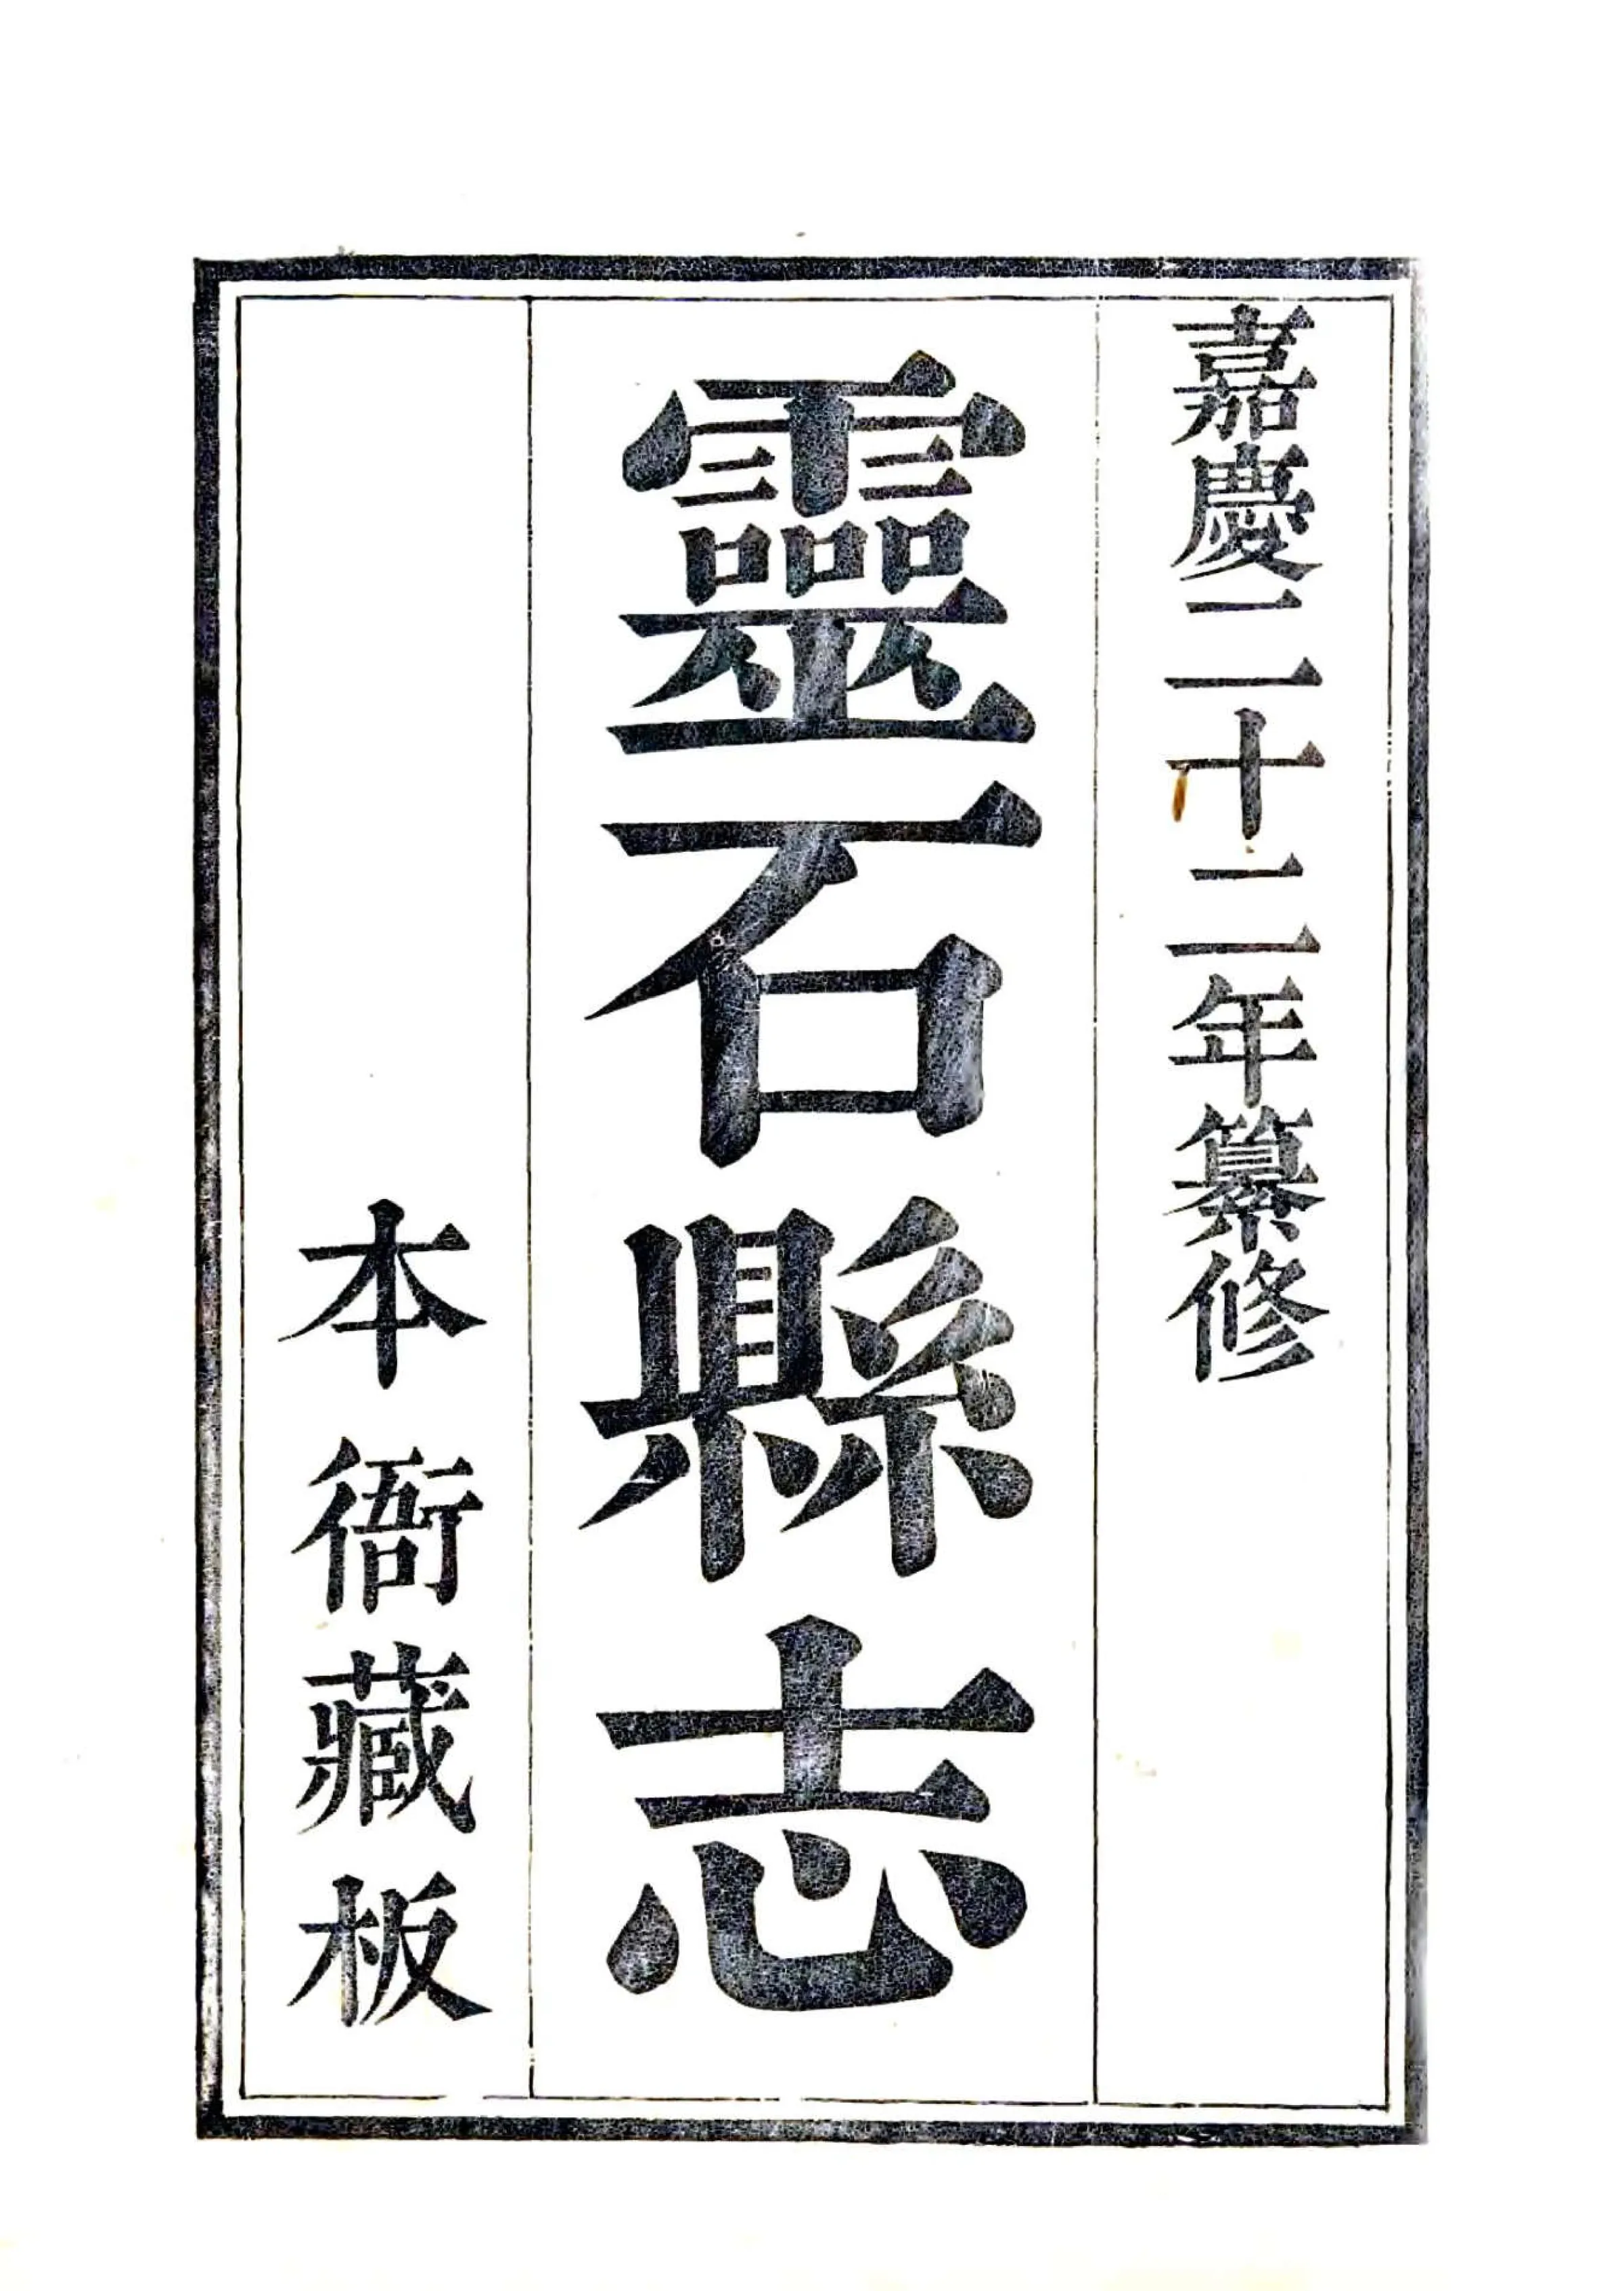 嘉慶二十二年纂修
靈石縣志
本衙藏板